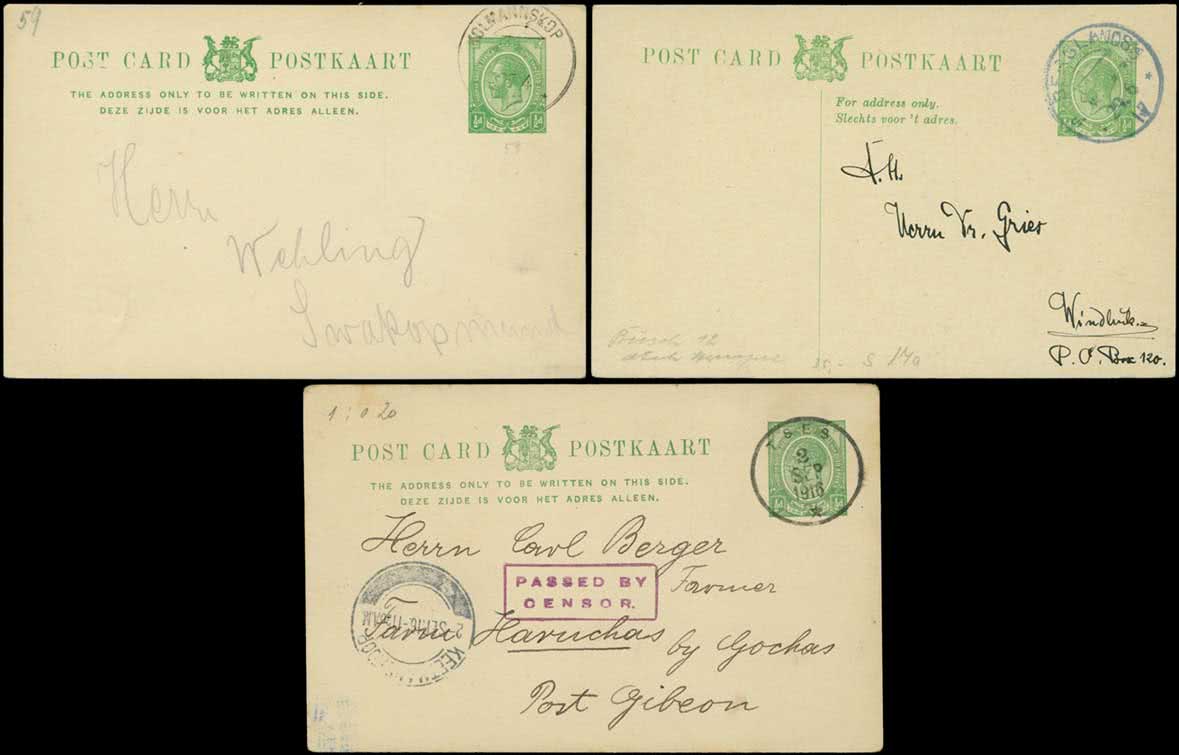 59
POST CARD POSTKAART
THE ADDRESS ONLY TO BE WRITTEN ON THIS SIDE.
DEZE ZIJDE IS VOOR HET ADRES ALLEEN.
KOLMANNSKOP
½d ½d
Herrn
Wehling
Swakopmund
POST CARD POSTKAART
For address only.
Slechts voor 't adres.
½d
Herrn Dr. Gries
Windhuk
P.O. Box 120.
35,- S 17a
1:0 20
POST CARD POSTKAART
THE ADDRESS ONLY TO BE WRITTEN ON THIS SIDE.
DEZE ZIJDE IS VOOR HET ADRES ALLEEN.
TSES
2
SEP
1916
½d ½d
Herrn Carl Berger
Farmer
PASSED BY
CENSOR.
Farm Haruchas by Gochas
Post Gibeon